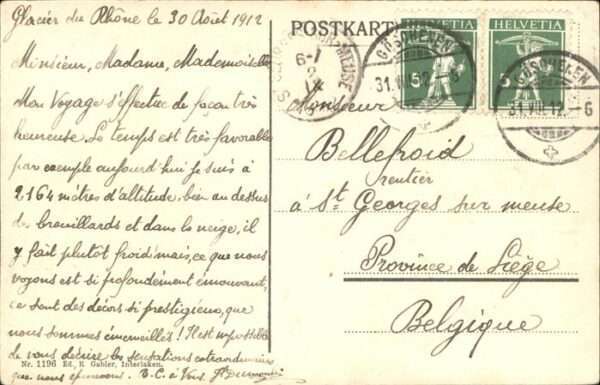 Glacier du Rhône le 30 Août 1912
Monsieur, Madame, Mademoiselle
Mon Voyage s'effectue de façon très
heureuse. Le temps est très favorable
par exemple aujourd'hui je suis à
2164 mètres d'altitude, bien au dessus
des brouillards et dans la neige, il
y fait plutôt froid mais, ce que nous
voyons est si profondément émouvant,
ce sont des décors si prestigieux, que
nous sommes émerveillés! Il est impossible
de vous décrire les sensations extraordinaires
que nous éprouvons. B.C. à Vous
Nr. 1196 Ed. R. Gabler, Interlaken.
POSTKARTE
HELVETIA HELVETIA
5 5
GÖSCHENEN
31.VIII.12.-6
GÖSCHENEN
31.VIII.12.-6
MEUSE
6-7
Monsieur
Bellefroid
rentier
à St Georges sur meuse
Province de Liège
Belgique